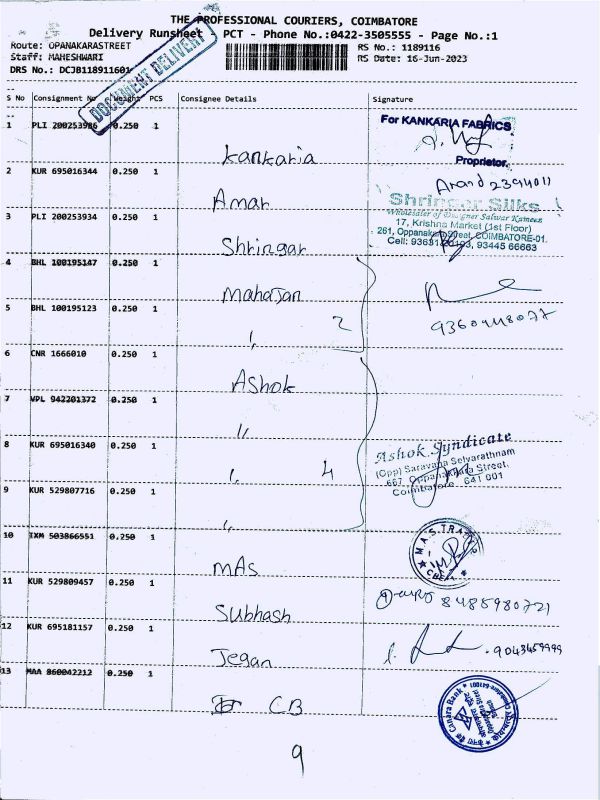 THE PROFESSIONAL COURIERS, COIMBATORE
Delivery Runsheet PCT - Phone No.:0422-3505555 - Page No.:1
Route: OPANAKARASTREET
RS No.: 1189116
Staff: MAHESHWARI
RS Date: 16-Jun-2023
DRS No.: DCJB118911601
DOCUMENT DELIVERY
S No Consignment No Weight PCS Consignee Details Signature
1 PLI 200253986 0.250 1 Kankaria
For KANKARIA FABRICS
Proprietor.
2 KUR 695016344 0.250 1 Amar
Anand 2394011
3 PLI 200253934 0.250 1 Shringar
Shringar Silks
Wholesaler of Designer Salwar Kameez
17, Krishna Market (1st Floor)
261, Oppanakara Street, COIMBATORE-01.
93445 66663
4 BHL 100195147 0.250 1 Mahajan
5 BHL 100195123 0.250 1 " 2
6 CNR 1666010 0.250 1 Ashok
7 VPL 942201372 0.250 1 "
8 KUR 695016340 0.250 1 " 4
Ashok Syndicate
(Opp) Saravana Selvarathnam
667, Oppanakara Street,
Coimbatore 641 001
9 KUR 529807716 0.250 1 "
10 IXM 503866551 0.250 1 MAS
11 KUR 529809457 0.250 1 Subhash
8485980721
12 KUR 695181157 0.250 1 Jegan
9043459999
13 MAA 860042212 0.250 1 CB
Canara Bank
9